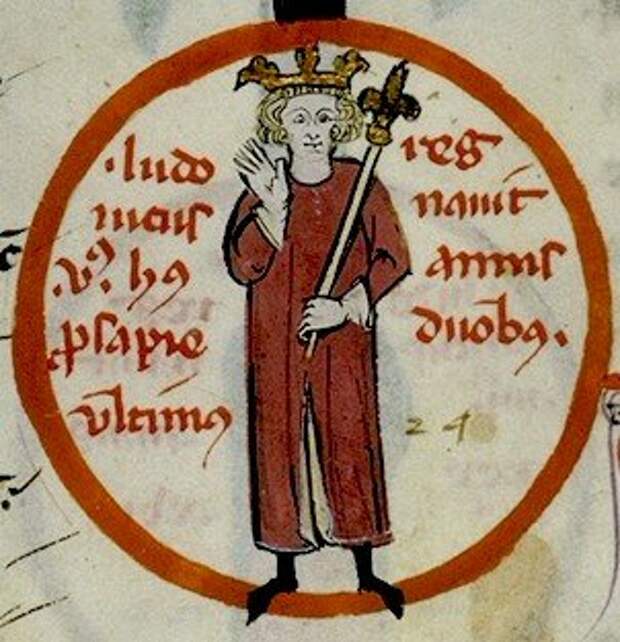 ·ludo
uicus
·vꝰ· hꝰ
ꝓsapie
vltimꝰ
reg
nauit
annis
duobꝫ.
24